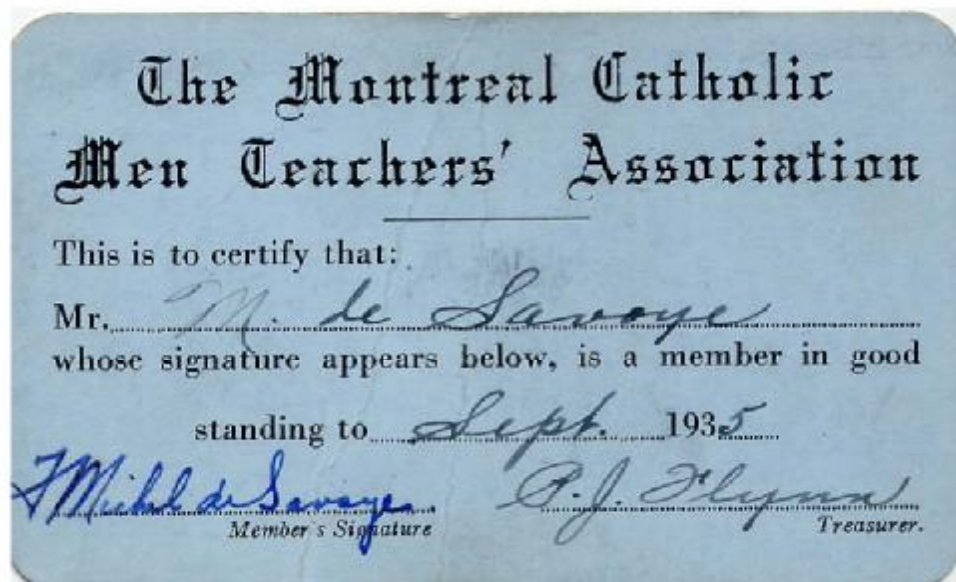 The Montreal Catholic
Men Teachers' Association
This is to certify that:
Mr. M. de Savoye
whose signature appears below, is a member in good
standing to Sept. 1935
Michel de Savoye P.J. Flynn
Member's Signature Treasurer.